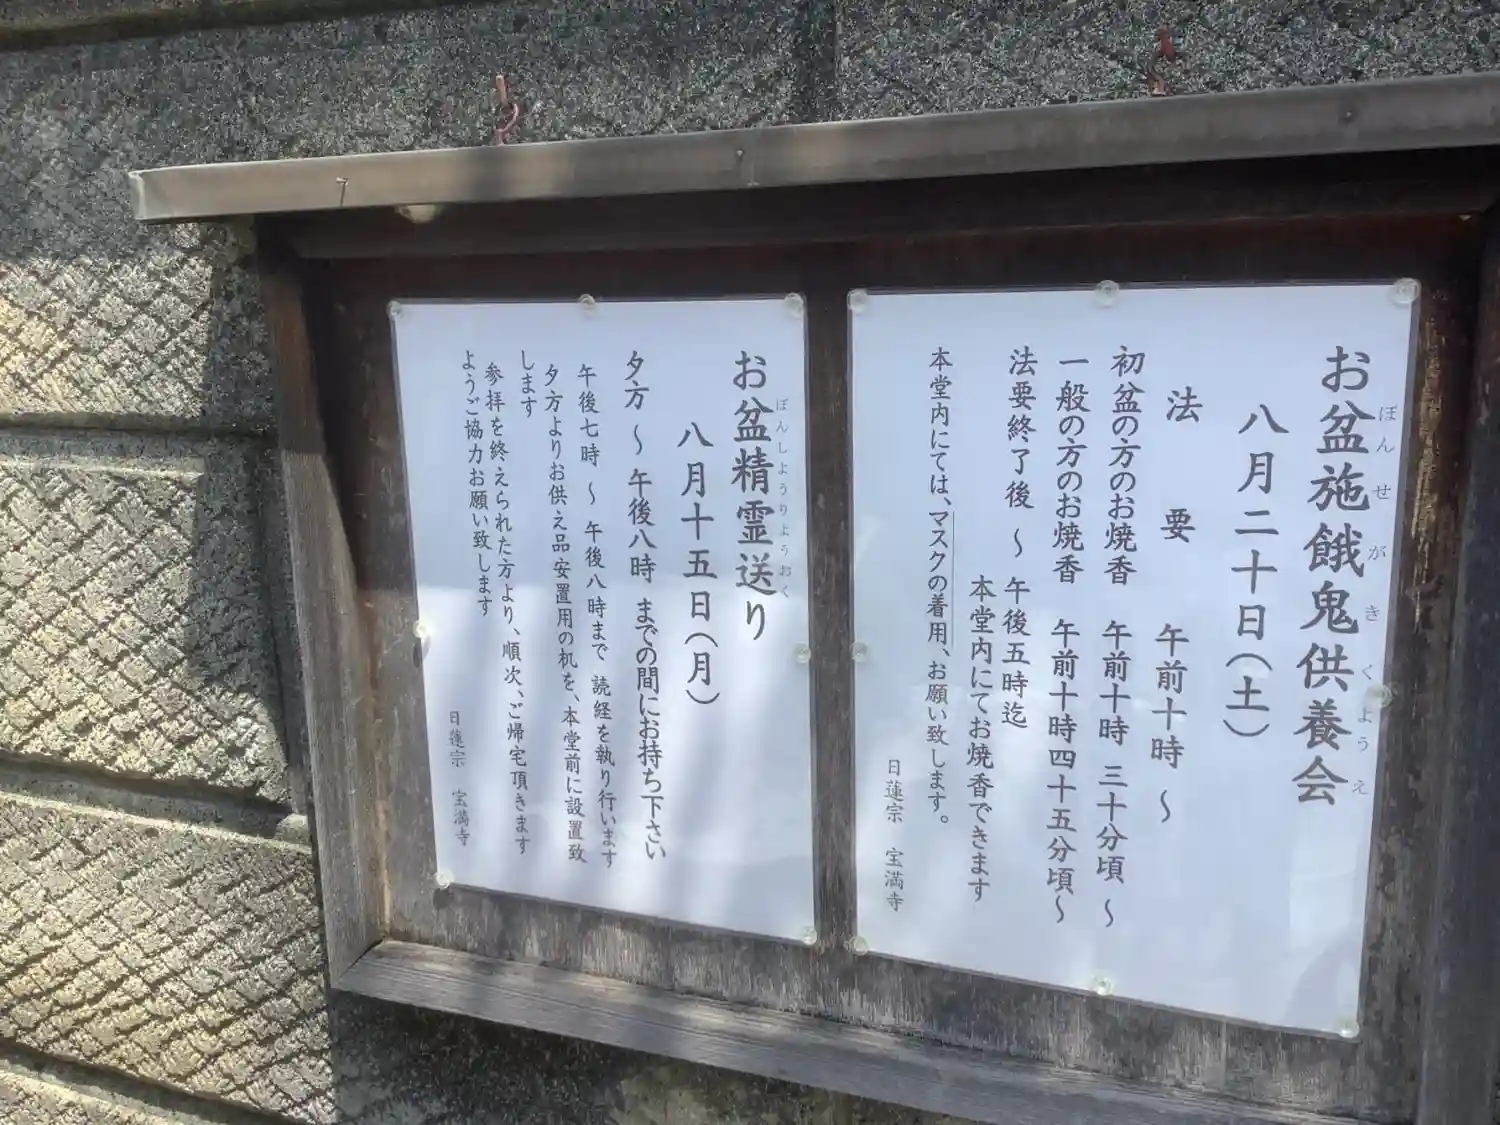 お盆施餓鬼供養会
ぼんせがきくようえ
八月二十日（土）
法 要 午前十時 〜
初盆の方のお焼香 午前十時 三十分頃 〜
一般の方のお焼香 午前十時四十五分頃〜
法要終了後 〜 午後五時迄
本堂内にてお焼香できます
本堂内にては、マスクの着用、お願い致します。
日蓮宗 宝満寺
お盆精霊送り
ぼんしようりようおく
八月十五日（月）
夕方 〜 午後八時 までの間にお持ち下さい
午後七時 〜 午後八時まで 読経を執り行います
夕方よりお供え品安置用の机を、本堂前に設置致
します
参拝を終えられた方より、順次、ご帰宅頂きます
ようご協力お願い致します
日蓮宗 宝満寺